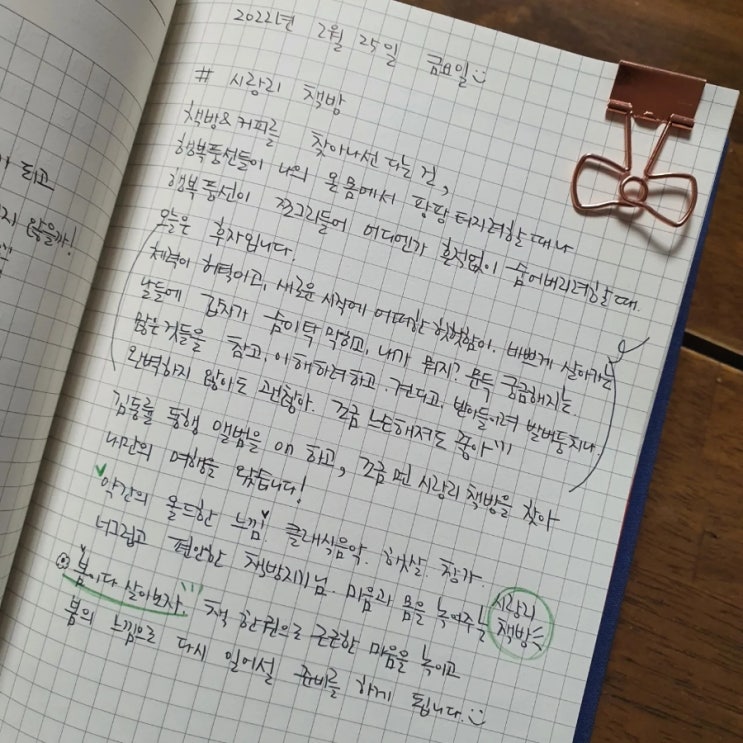 2022년 2월 25일 금요일
# 시랑리 책방
책방&커피를 찾아나선 다는 건,
행복풍선들이 나의 온 몸에서 팡팡 터지려할 때나
행복풍선이 쪼그라들어 어디엔가 흔적없이 숨어버리려할 때.
오늘은 후자입니다.
체력이 허력하고, 새로운 시작에 어떠한 헛헛함이. 바쁘게 살아가는
날들에 갑자기 숨이 탁 막히고, 내가 뭐지? 문득 궁금해지는
많은 것들을 참고, 이해하려하고 견디고, 받아들이려 발버둥치나
완벽하지 않아도 괜찮아. 조금 느슨해져도 좋아
김동률 동행 앨범을 on 하고, 조금 먼 시랑리 책방을 찾아
나만의 여행을 왔습니다!
약간의 올드한 느낌. 클래식음악. 햇살. 창가.
너그럽고 편안한 책방지기님. 마음과 몸을 녹여주는 시랑리 책방
봄이다 살아보자. 책 한권으로 마음을 녹이고
봄의 느낌으로 다시 일어설 준비를 하게 됩니다.
이 되고
지 않을까!